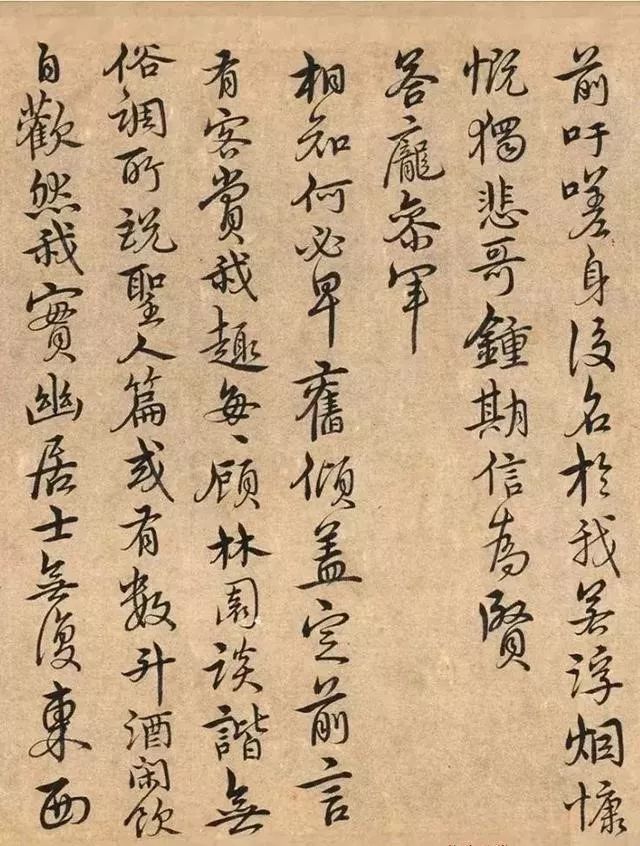 前吁嗟身後名於我若浮烟慷
慨獨悲哥鍾期信為賢
答龐参军
相知何必早舊傾盖定前言
有客賞我趣每〻顧林園談諧無
俗調所説聖人篇或有數升酒閑飲
自歡然我實幽居士無復東西